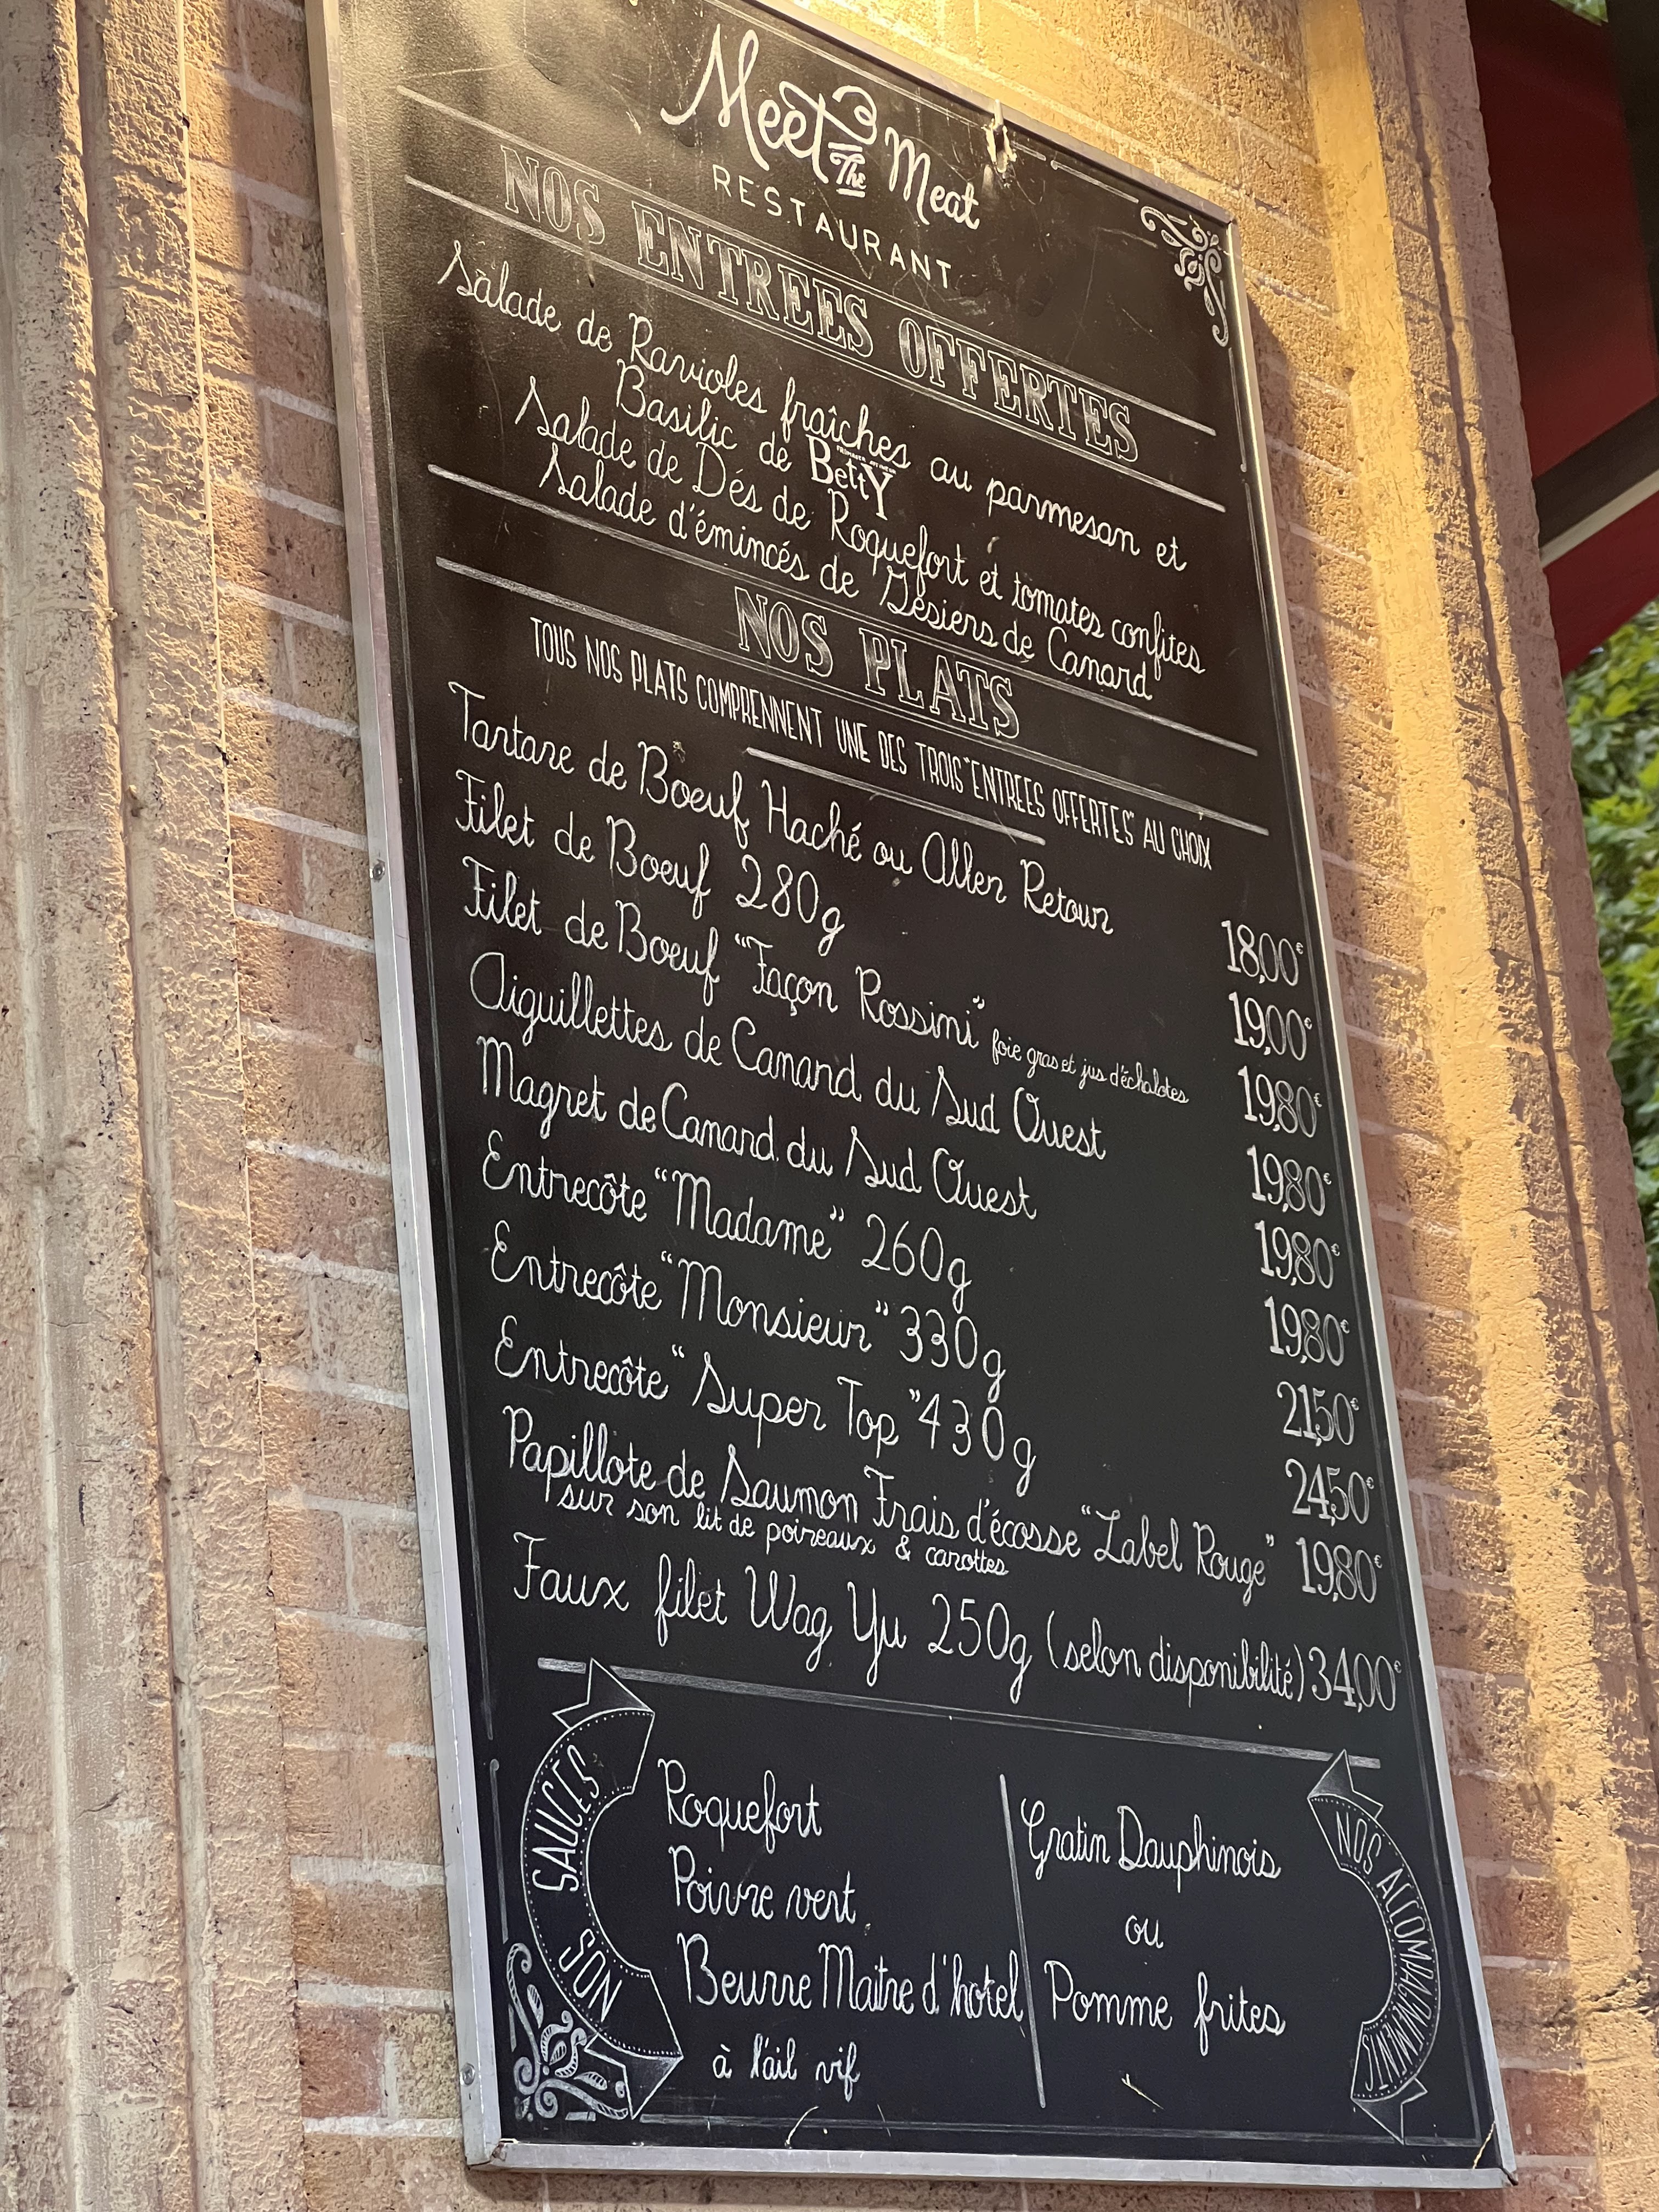 Meet The Meat
RESTAURANT
NOS ENTREES OFFERTES
Salade de Ravioles fraîches au parmesan et
Basilic de BettY
Salade de Dés de Roquefort et tomates confites
Salade d'émincés de Gésiers de Canard
NOS PLATS
TOUS NOS PLATS COMPRENNENT UNE DES TROIS "ENTREES OFFERTES" AU CHOIX
Tartare de Boeuf Haché ou Aller Retour 18,00€
Filet de Boeuf 280g 19,00€
Filet de Boeuf "Façon Rossini" foie gras et jus d'échalotes 19,80€
Aiguillettes de Canard du Sud Ouest 19,80€
Magret de Canard du Sud Ouest 19,80€
Entrecôte "Madame" 260g 19,80€
Entrecôte "Monsieur" 330g 21,50€
Entrecôte "Super Top" 430g 24,50€
Papillote de Saumon Frais d'écosse "Label Rouge" 19,80€
sur son lit de poireaux & carottes
Faux filet Wag Yu 250g (selon disponibilité) 34,00€
NOS SAUCES
Roquefort
Poivre vert
Beurre Maitre d'hotel
à l'ail vif
Gratin Dauphinois
ou
Pomme frites
NOS ACCOMPAGNEMENTS